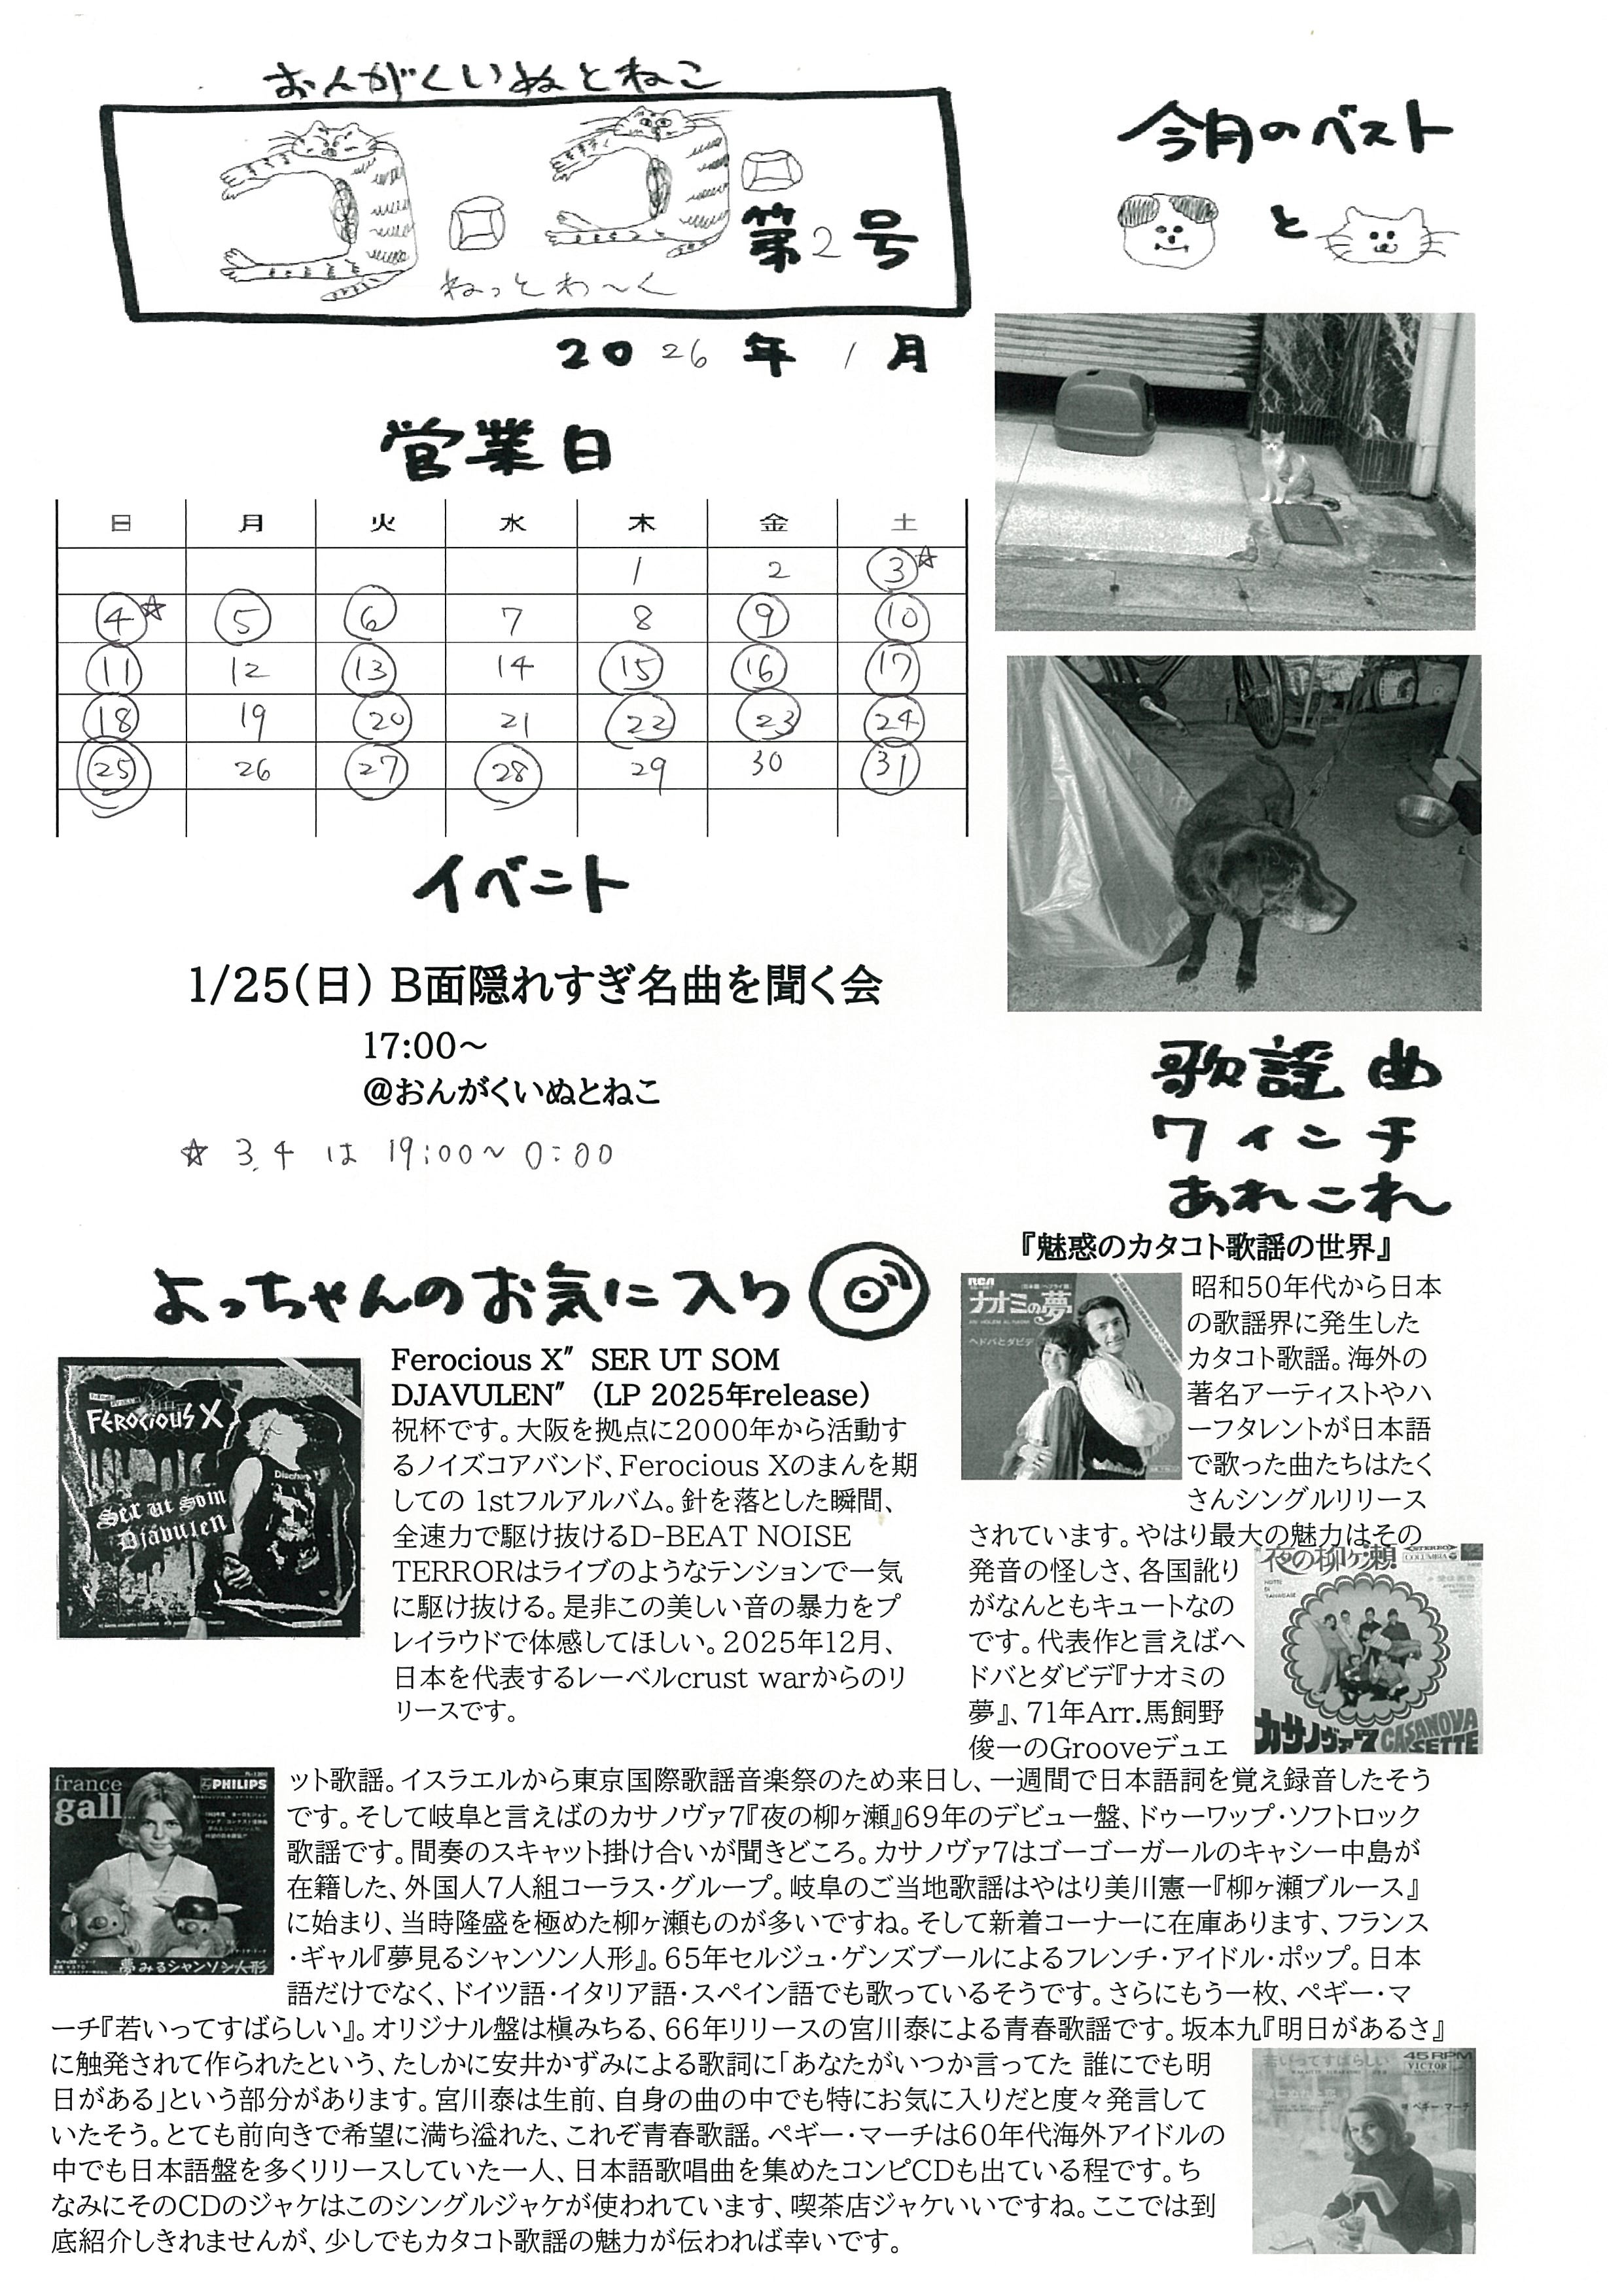 おんがくいぬとねこ
ココ
ねっとわ〜く
第2号
2026年1月
営業日
日 月 火 水 木 金 土
1 2 3☆
4☆ 5 6 7 8 9 10
11 12 13 14 15 16 17
18 19 20 21 22 23 24
25 26 27 28 29 30 31
イベント
1/25(日) B面隠れすぎ名曲を聞く会
17:00～
@おんがくいぬとねこ
☆ 3,4 は 19:00～0:00
今月のベスト
と
よっちゃんのお気に入り
FEROCIOUS X
Ser ut Som
Djävulen
Ferocious X” SER UT SOM
DJAVULEN” (LP 2025年release)
祝杯です。大阪を拠点に2000年から活動す
るノイズコアバンド、Ferocious Xのまんを期
しての 1stフルアルバム。針を落とした瞬間、
全速力で駆け抜けるD-BEAT NOISE
TERRORはライブのようなテンションで一気
に駆け抜ける。是非この美しい音の暴力をプ
レイラウドで体感してほしい。2025年12月、
日本を代表するレーベルcrust warからのリ
リースです。
歌謡曲
ワインチ
あれこれ
『魅惑のカタコト歌謡の世界』
RCA
ナオミの夢
ヘドバとダビデ
昭和50年代から日本
の歌謡界に発生した
カタコト歌謡。海外の
著名アーティストやハ
ーフタレントが日本語
で歌った曲たちはたく
さんシングルリリース
されています。やはり最大の魅力はその
発音の怪しさ、各国訛り
がなんともキュートなの
です。代表作と言えばヘ
ドバとダビデ『ナオミの
夢』、71年Arr.馬飼野
俊一のGrooveデュエ
夜の柳ヶ瀬
STEREO
COLUMBIA
カサノヴァ7
CASANOVA
SETTE
france
gall
PHILIPS
夢みるシャンソン人形
ット歌謡。イスラエルから東京国際歌謡音楽祭のため来日し、一週間で日本語詞を覚え録音したそう
です。そして岐阜と言えばのカサノヴァ7『夜の柳ヶ瀬』69年のデビュー盤、ドゥーワップ・ソフトロック
歌謡です。間奏のスキャット掛け合いが聞きどころ。カサノヴァ7はゴーゴーガールのキャシー中島が
在籍した、外国人7人組コーラス・グループ。岐阜のご当地歌謡はやはり美川憲一『柳ヶ瀬ブルース』
に始まり、当時隆盛を極めた柳ヶ瀬ものが多いですね。そして新着コーナーに在庫あります、フランス
・ギャル『夢見るシャンソン人形』。65年セルジュ・ゲンズブールによるフレンチ・アイドル・ポップ。日本
語だけでなく、ドイツ語・イタリア語・スペイン語でも歌っているそうです。さらにもう一枚、ペギー・マ
ーチ『若いってすばらしい』。オリジナル盤は槇みちる、66年リリースの宮川泰による青春歌謡です。坂本九『明日があるさ』
に触発されて作られたという、たしかに安井かずみによる歌詞に「あなたがいつか言ってた 誰にでも明
日がある」という部分があります。宮川泰は生前、自身の曲の中でも特にお気に入りだと度々発言して
いたそう。とても前向きで希望に満ち溢れた、これぞ青春歌謡。ペギー・マーチは60年代海外アイドルの
中でも日本語盤を多くリリースしていた一人、日本語歌唱曲を集めたコンピCDも出ている程です。ち
なみにそのCDのジャケはこのシングルジャケが使われています、喫茶店ジャケいいですね。ここでは到
底紹介しきれませんが、少しでもカタコト歌謡の魅力が伝われば幸いです。
若いってすばらしい
45 RPM
VICTOR
ペギー・マーチ